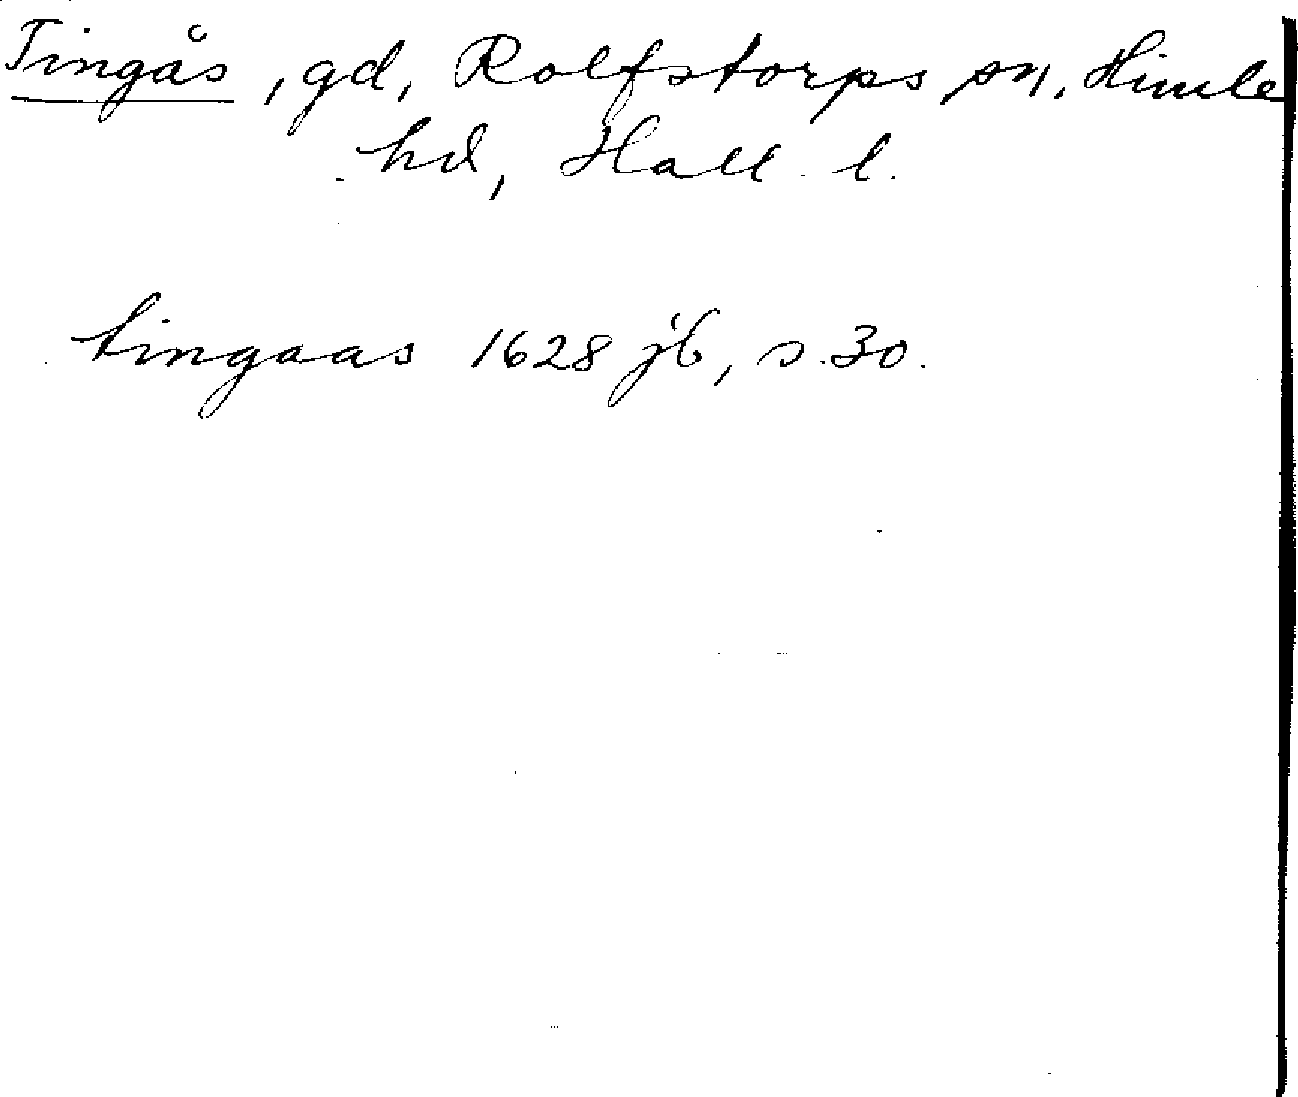 Tingås, gd, Rolfstorps sn, Himle
hd, Hall. l.
tingaas 1628 jb, s. 30.